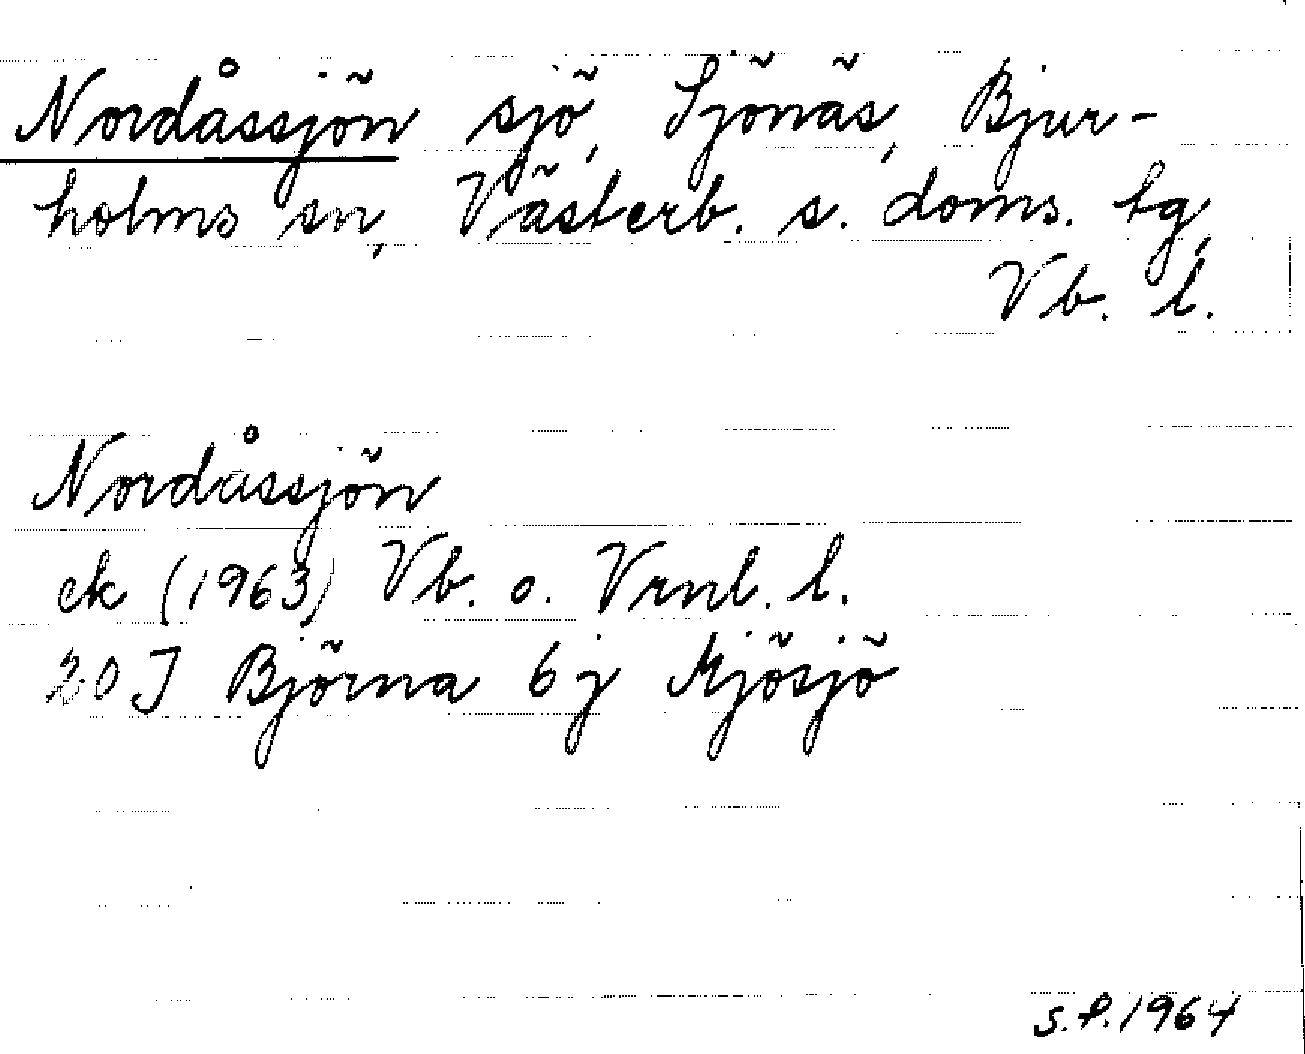 Nordåssjön sjö, Sjönäs, Bjur-
holms sn, Västerb. s. doms. tg,
Vb. l.
Nordåssjön
ek (1963) Vb. o. Vrnl. l.
20 J Björna 6 j Mjösjö
S.P. 1964